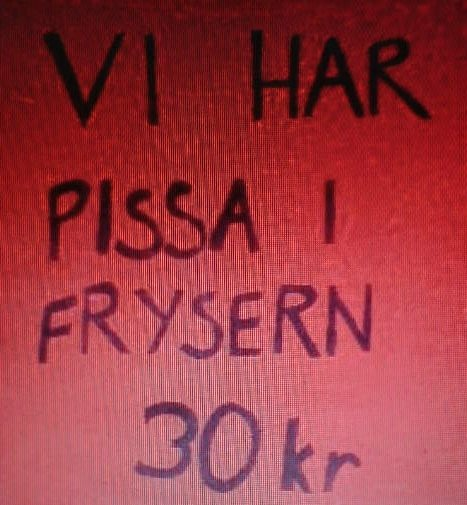 VI HAR
PISSA I
FRYSERN
30 kr